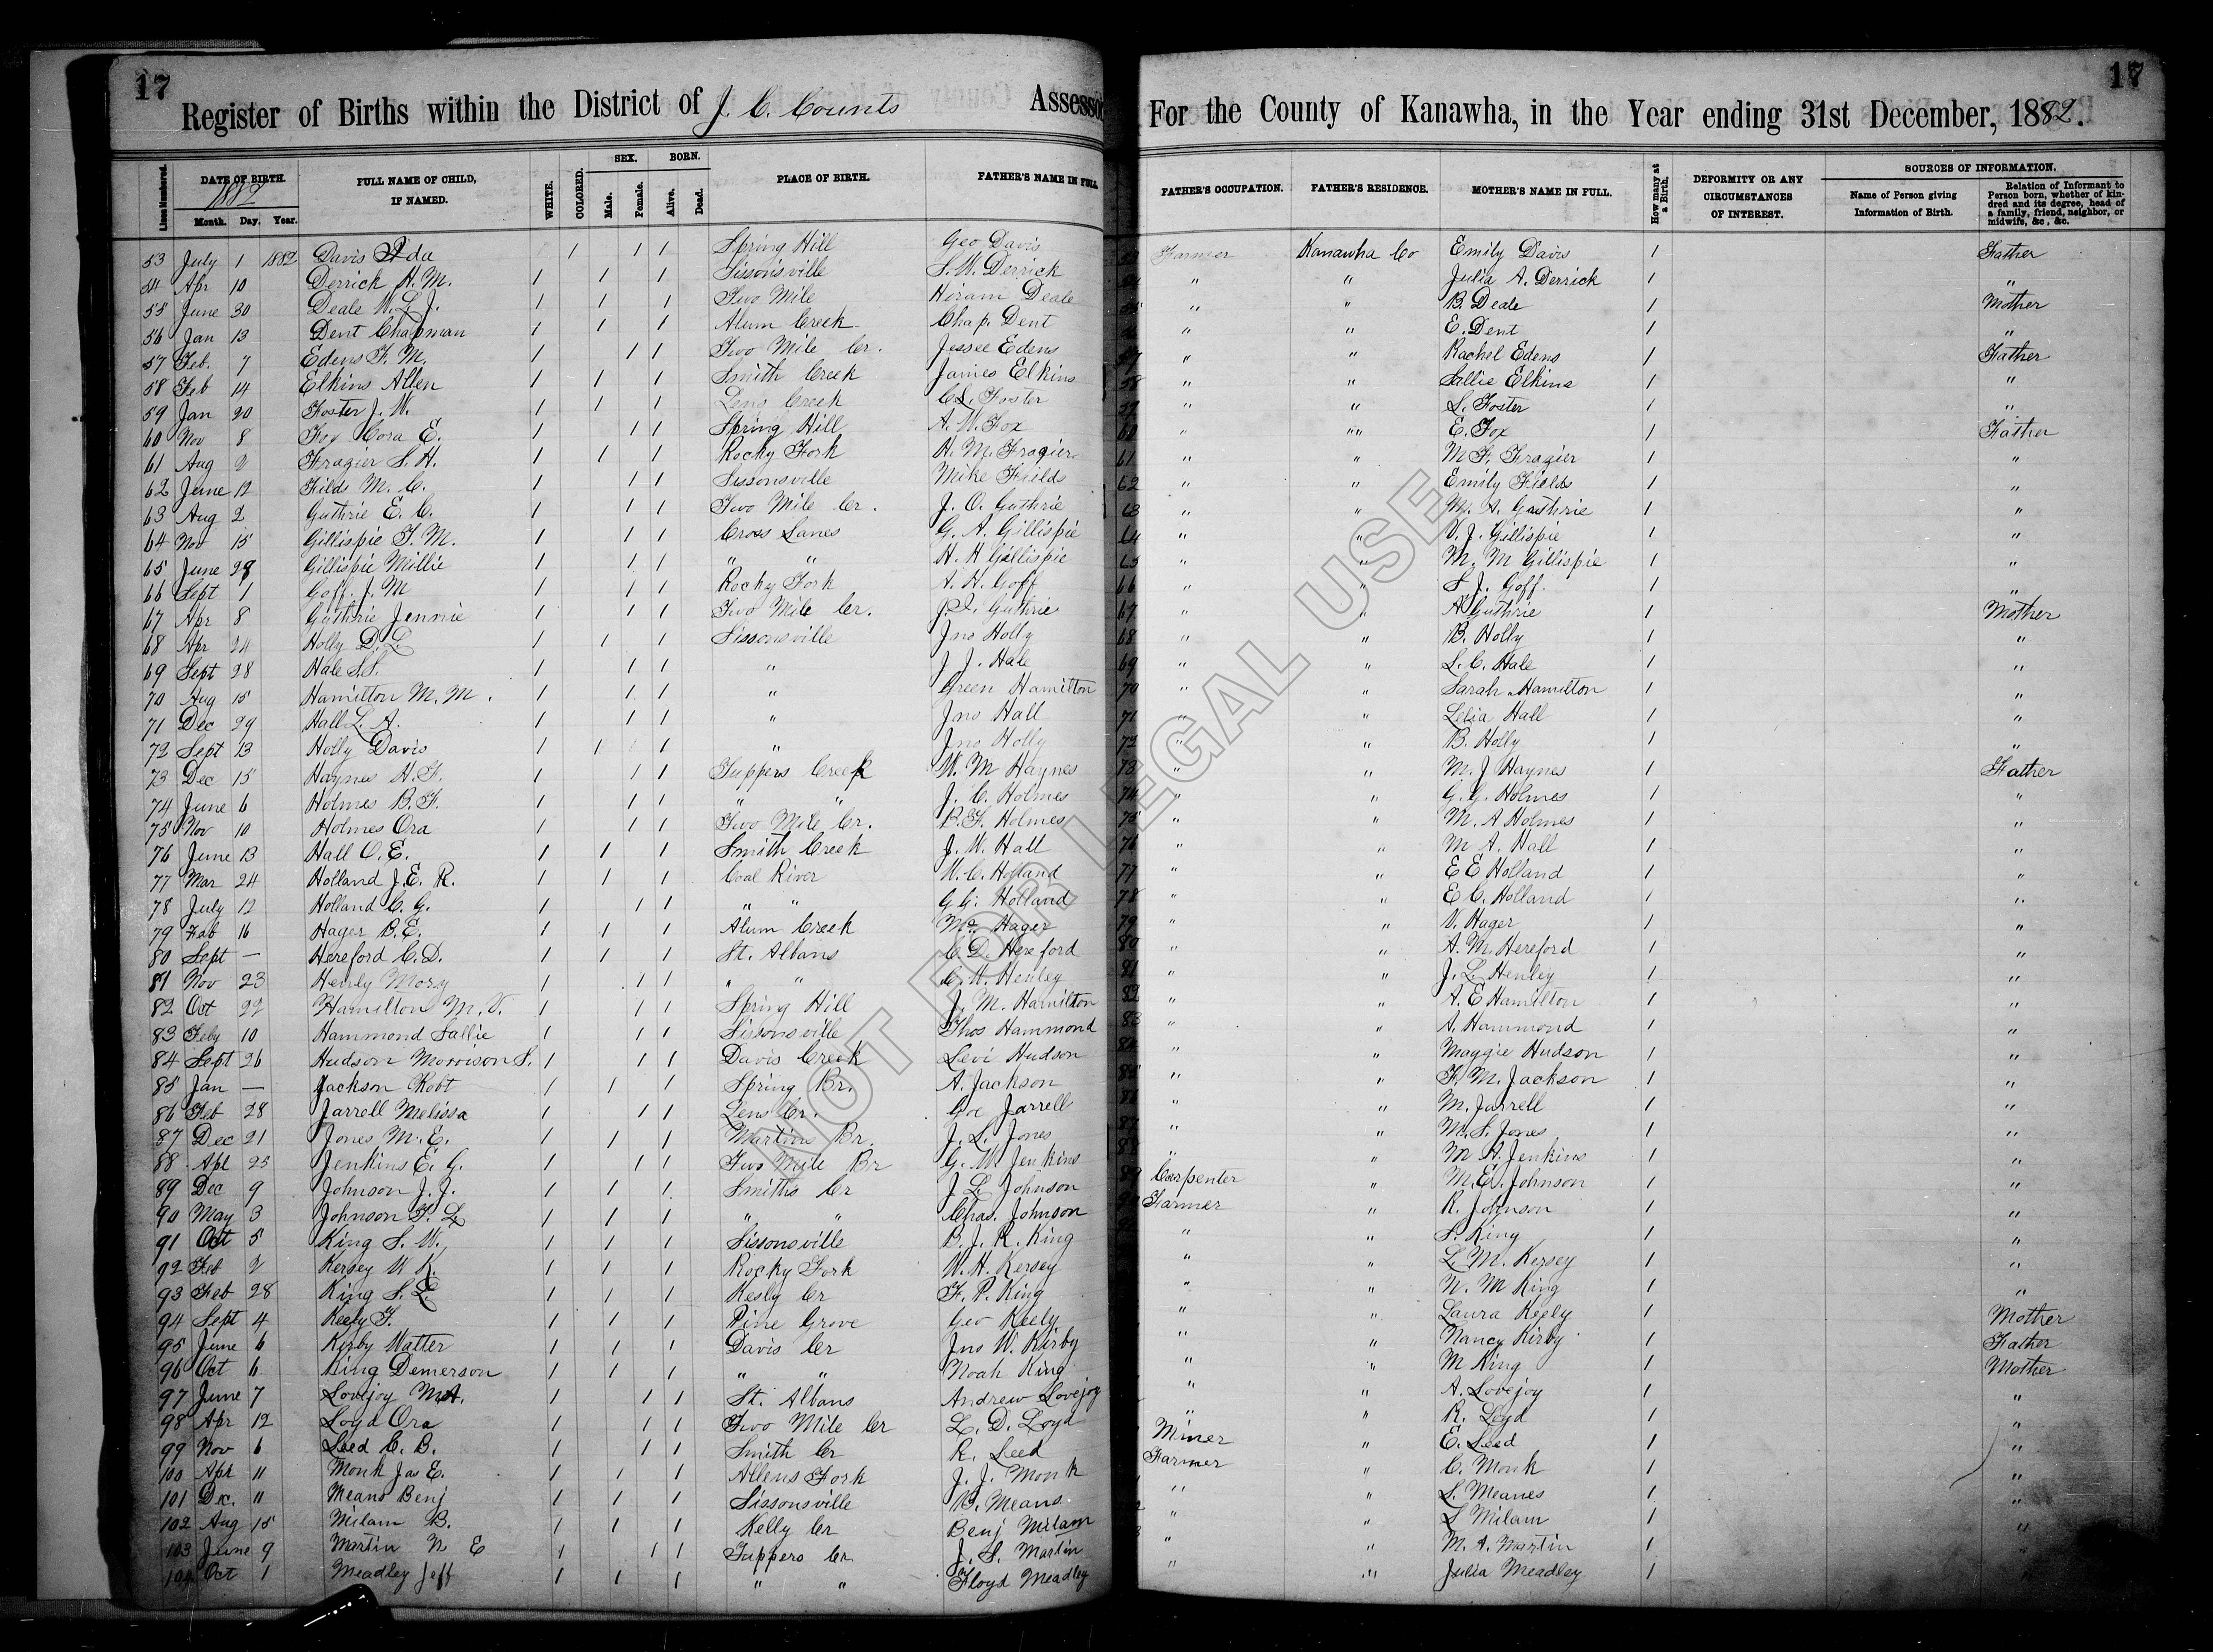 17
Register of Births within the District of J. C. Counts Assessor
Lines Numbered. DATE OF BIRTH. 1882 Month. Day. Year. FULL NAME OF CHILD, IF NAMED. WHITE. COLORED. SEX. Male. Female. BORN. Alive. Dead. PLACE OF BIRTH. FATHER'S NAME IN FULL.
53 July 1 1882 Davis Ada 1 1 1 Spring Hill Geo Davis
54 Apr 10 Derrick H. M. 1 1 1 Sissonsville S. W. Derrick
55 June 30 Deale W. L. J. 1 1 1 Two Mile Hiram Deale
56 Jan 13 Dent Chapman 1 1 1 Alum Creek Chap. Dent
57 Feb. 7 Edens F. M. 1 1 1 Two Mile Cr. Jessee Edens
58 Feb 14 Elkins Allen 1 1 1 Smith Creek James Elkins
59 Jan 20 Foster J. W. 1 1 1 Lens Creek C. L. Foster
60 Nov 8 Fox Cora E. 1 1 1 Spring Hill A. W. Fox
61 Aug 2 Frazier S. H. 1 1 1 Rocky Fork H. M. Frazier
62 June 12 Filds M. C. 1 1 1 Sissonsville Mike Fields
63 Aug 2 Guthrie E. C. 1 1 1 Two Mile Cr. J. O. Guthrie
64 Nov 15 Gillispie F. M. 1 1 1 Cross Lanes G. A. Gillispie
65 June 28 Gillispie Millie 1 1 1 " " H. H Gillispie
66 Sept 1 Goff. J. M 1 1 1 Rocky Fork A. H. Goff
67 Apr 8 Guthrie Jennie 1 1 1 Two Mile Cr. Guthrie
68 Apr 24 Holly D. L. 1 1 1 Sissonsville Jno Holly
69 Sept 28 Hale S. S. 1 1 1 " J. J. Hale
70 Aug 15 Hamilton M. M. 1 1 1 " Green Hamilton
71 Dec 29 Hall L. A. 1 1 1 " Jno Hall
72 Sept 13 Holly Davis 1 1 1 " Jno Holly
73 Dec 15 Haynes H. F. 1 1 1 Tuppers Creek W. M Haynes
74 June 6 Holmes B. F. 1 1 1 " " J. C. Holmes
75 Nov 10 Holmes Ora 1 1 1 Two Mile Cr. B. F. Holmes
76 June 13 Hall O. E. 1 1 1 Smith Creek J. W. Hall
77 Mar 24 Holland J. E. R. 1 1 1 Coal River W. C. Holland
78 July 12 Holland C. G. 1 1 1 " " G. G. Holland
79 Feb 16 Hager B. E. 1 1 1 Alum Creek Hager
80 Sept — Hereford C. D. 1 1 1 St. Albans C. D. Hereford
81 Nov 23 Henly Mary 1 1 1 " " C. W. Henley
82 Oct 22 Hamilton M. V. 1 1 1 Spring Hill J. M. Hamilton
83 Feby 10 Hammond Sallie 1 1 1 Sissonsville Thos Hammond
84 Sept 26 Hudson Morrison S. 1 1 1 Davis Creek Levi Hudson
85 Jan — Jackson Robt 1 1 1 Spring Br. A. Jackson
86 Feb 28 Jarrell Melissa 1 1 1 Lens Cr. Jarrell
87 Dec 21 Jones M. E. 1 1 1 Martins Br. J. S. Jones
88 Apl 23 Jenkins E. G. 1 1 1 Two Mile Br G. W. Jenkins
89 Dec 9 Johnson J. J. 1 1 1 Smiths Cr J. L. Johnson
90 May 3 Johnson F. L. 1 1 1 " " Chas. Johnson
91 Oct 5 King S. W. 1 1 1 Sissonsville B. J. R. King
92 Feb 2 Kersey W K. 1 1 1 Rocky Fork W. H. Kersey
93 Feb 28 King S. E. 1 1 1 Kesly Cr F. P. King
94 Sept 4 Keely F. 1 1 1 Pine Grove Geo Keely
95 June 6 Kirby Walter 1 1 1 Davis Cr Jno W. Kirby
96 Oct 6 King Demerson 1 1 1 " " Noah King
97 June 7 Lovejoy M. A. 1 1 1 St. Albans Andrew Lovejoy
98 Apr 12 Loyd Ora 1 1 1 Two Mile Cr L. D. Loyd
99 Nov 6 Leed C. B. 1 1 1 Smith Cr R. Leed
100 Apr 11 Monk Jas E. 1 1 1 Allens Fork J. J. Monk
101 Dec. 11 Means Benj 1 1 1 Sissonsville B. Means
102 Aug 15 Milam B. 1 1 1 Kelly Cr Benj Milam
103 June 9 Martin N E 1 1 1 Tuppers Cr J. S. Martin
104 Oct 1 Meadley Jeff 1 1 1 " " Floyd Meadley
17
For the County of Kanawha, in the Year ending 31st December, 1882.
FATHER'S OCCUPATION. FATHER'S RESIDENCE. MOTHER'S NAME IN FULL. How many at a Birth. DEFORMITY OR ANY CIRCUMSTANCES OF INTEREST. SOURCES OF INFORMATION. Name of Person giving Information of Birth. Relation of Informant to Person born, whether of kindred and its degree, head of a family, friend, neighbor, or midwife, &c., &c.
53 Farmer Kanawha Co Emily Davis 1 Father
54 " " Julia A. Derrick 1 "
55 " " B. Deale 1 Mother
56 " " E. Dent 1 "
57 " " Rachel Edens 1 Father
58 " " Sallie Elkins 1 "
59 " " L. Foster 1 "
60 " " E. Fox 1 Father
61 " " M F. Frazier 1 "
62 " " Emily Fields 1 "
63 " " M. A. Guthrie 1 "
64 " " V. J. Gillispie 1 "
65 " " M. M Gillispie 1 "
66 " " S. J. Goff. 1 "
67 " " A Guthrie 1 Mother
68 " " B. Holly 1 "
69 " " L. C. Hale 1 "
70 " " Sarah Hamilton 1 "
71 " " Lelia Hall 1 "
72 " " B. Holly 1 "
73 " " M. J Haynes 1 Father
74 " " G. G. Holmes 1 "
75 " " M. A Holmes 1 "
76 " " M A. Hall 1 "
77 " " E E Holland 1 "
78 " " E C. Holland 1 "
79 " " V. Hager 1 "
80 " " A. M. Hereford 1 "
81 " " J. L. Henley 1 "
82 " " A. E Hamilton 1 "
83 " " A. Hammond 1 "
84 " " Maggie Hudson 1 "
85 " " F. M. Jackson 1 "
86 " " M. Jarrell 1 "
87 " " M. S. Jones 1 "
88 " " M A. Jenkins 1 "
89 Carpenter " M. E. Johnson 1 "
90 Farmer " R. Johnson 1 "
" " S. King 1 "
" " L. M. Kersey 1 "
" " N. M King 1 "
" " Laura Keely 1 Mother
" " Nancy Kirby 1 Father
" " M King 1 Mother
" " A. Lovejoy 1 "
" " R. Loyd 1 "
Miner " E. Leed 1 "
Farmer " C. Monk 1 "
" " S. Meanes 1 "
" " S Milam 1 "
" " M. A. Martin 1 "
" " Julia Meadley 1 "
NOT FOR LEGAL USE